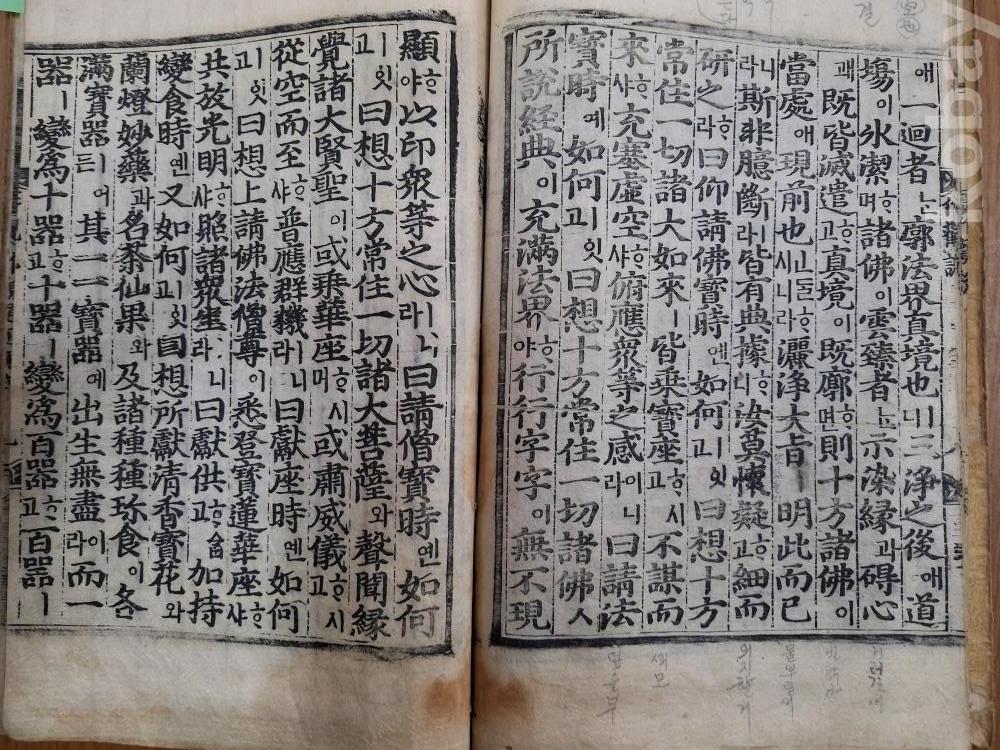 애 一迴者는 廓法界真境也ㅣ니 三淨之後애 道
塲이 氷潔ᄒᆞ며 諸佛이 雲臻者는 示染緣과 碍心
괘 既皆滅遣ᄒᆞ고 真境이 既廓ᄒᆞ면 則十方諸佛이
當處애 現前也 시니라 灑淨大旨ㅣ 明此而已
니라 斯非臆斷이라 皆有典據ᄒᆞ니 汝莫懷疑ᄒᆞ고 細而
研之ᄒᆞ라 曰仰請佛寶時옌 如何ㅣ잇고 曰想十方
常住一切諸大如來ㅣ 皆乗寶座ᄒᆞ시고 不謀而
來ᄒᆞ샤 充塞虛空ᄒᆞ샤 俯應衆等之感이니라 曰請法
寳時예 如何ㅣ잇고 曰想十方常住一切諸佛人
所說經典이 充滿法界ᄒᆞ야 行行字字이 無不現
顯ᄒᆞ야 以印衆等之心ㅣ니라 曰請僧寳時옌 如何
ㅣ잇고 曰想十方常住一切諸大菩薩와 聲聞緣
覺諸大賢聖이 或乗華座ᄒᆞ시며 或肅威儀ᄒᆞ시고
從空而至ᄒᆞ샤 普應群機ㅣ니라 曰獻座時옌 如何
ㅣ잇고 曰想上請佛法僧尊이 悉登寳蓮華座ᄒᆞ샤
共放光明ᄒᆞ샤 照諸衆生ㅣ니라 曰獻供ᄒᆞᆸ고 加持
變食時옌 又如何ㅣ잇고 曰想所獻清香寳花와
蘭燈妙藥과 名茶仙果와 及諸種種珎食이 各
滿寳器어든 其一一寳器에 出生無盡이라 而一
器ㅣ 變為十器ᄒᆞ고 十器ㅣ 變為百器ᄒᆞ고 百器ㅣ
Kobay